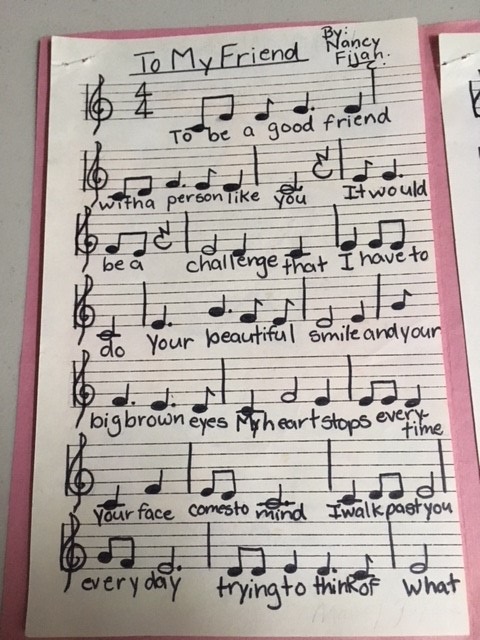 To My Friend
By:
Nancy
Fijan.
4
4
To be a good friend
with a person like you It would
be a challenge that I have to
do your beautiful smile and your
big brown eyes My heart stops every-
time
your face comes to mind I walk past you
every day trying to think of what